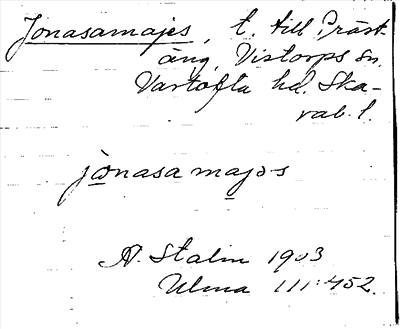 Jonasamajes, t. till Präst-
äng, Vistorps sn.
Vartofta hd. Ska-
rab. l.
jònasa majəs
A. Stalin 1903
Ulma 111:452.